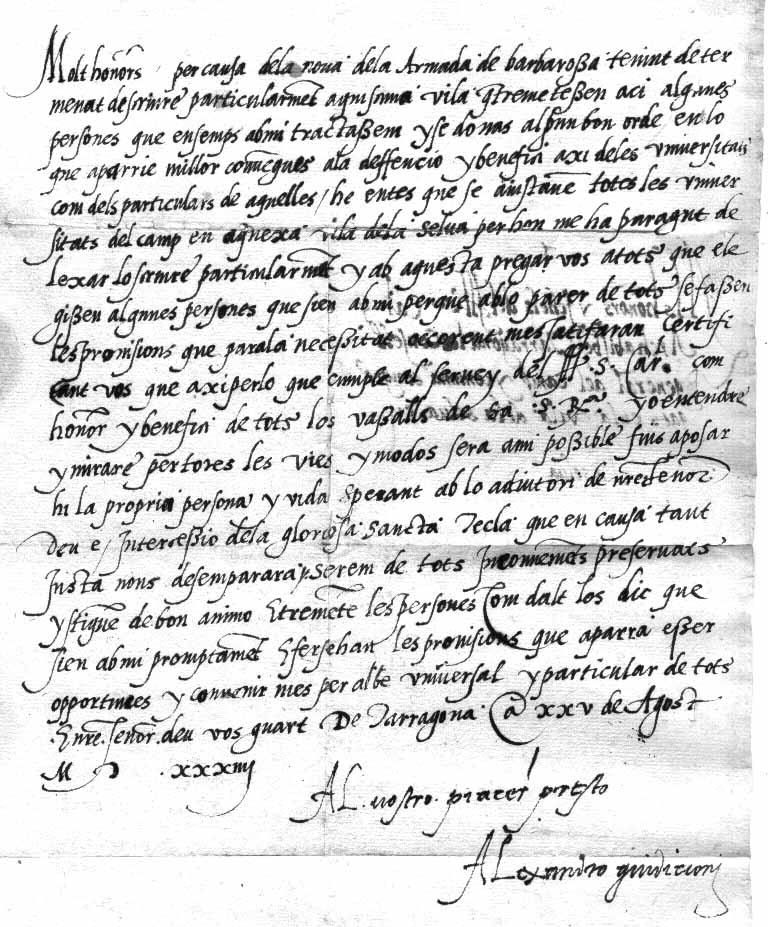 Molt honors per causa dela nova dela Armada de barbaroßa tenint deter
menat descriure particularmet aquisana vila qtremeteßen aci algunes
persones que ensemps abmi tractaßem y se donas alguun bon orde en lo
que aparrie millor conuegues ala deffencio y benefici axi deles vniuersitats
com dels particulars de aquelles / he entes que se aiustaue totes les vniuer
sitats del camp en aquexa vila dela Selua per hon me ha paragut de
lexar lo scriure particularmet y ab aquesta pregar vos atots que ele
gißen algunes persones que sien ab mi perque ablo parer de tots se faßen
les prouisions que parala neceßitat occorent mes satifaran Certifi
cant vos que axi perlo que cumple al seruey de S. Car. com
honor y benefici de tots los vaßalls de sa S. Ra. yo entendre
y mirare per totes les vies y modos sera ami poßible fins aposar
hi la propria persona y vida sperant ab lo adiutori de nre señor
Deu e Intercessio dela gloriosa Sancta Tecla que en causa tant
Iusta nons desemparara y serem de tots Inconuenients preseruats
y stigue de bon animo Etremete les persones Com dalt los dic que
sien abmi promptamet Efersehan les prouisions que aparra eßer
opportunes y conuenir mes per albe vniuersal y particular de tots
Enre. señor. deu vos guart De Tarragona @ xxv de Agost
M D .xxxiiij
AL. vostro. piacer presto
ALexandro giudicioni